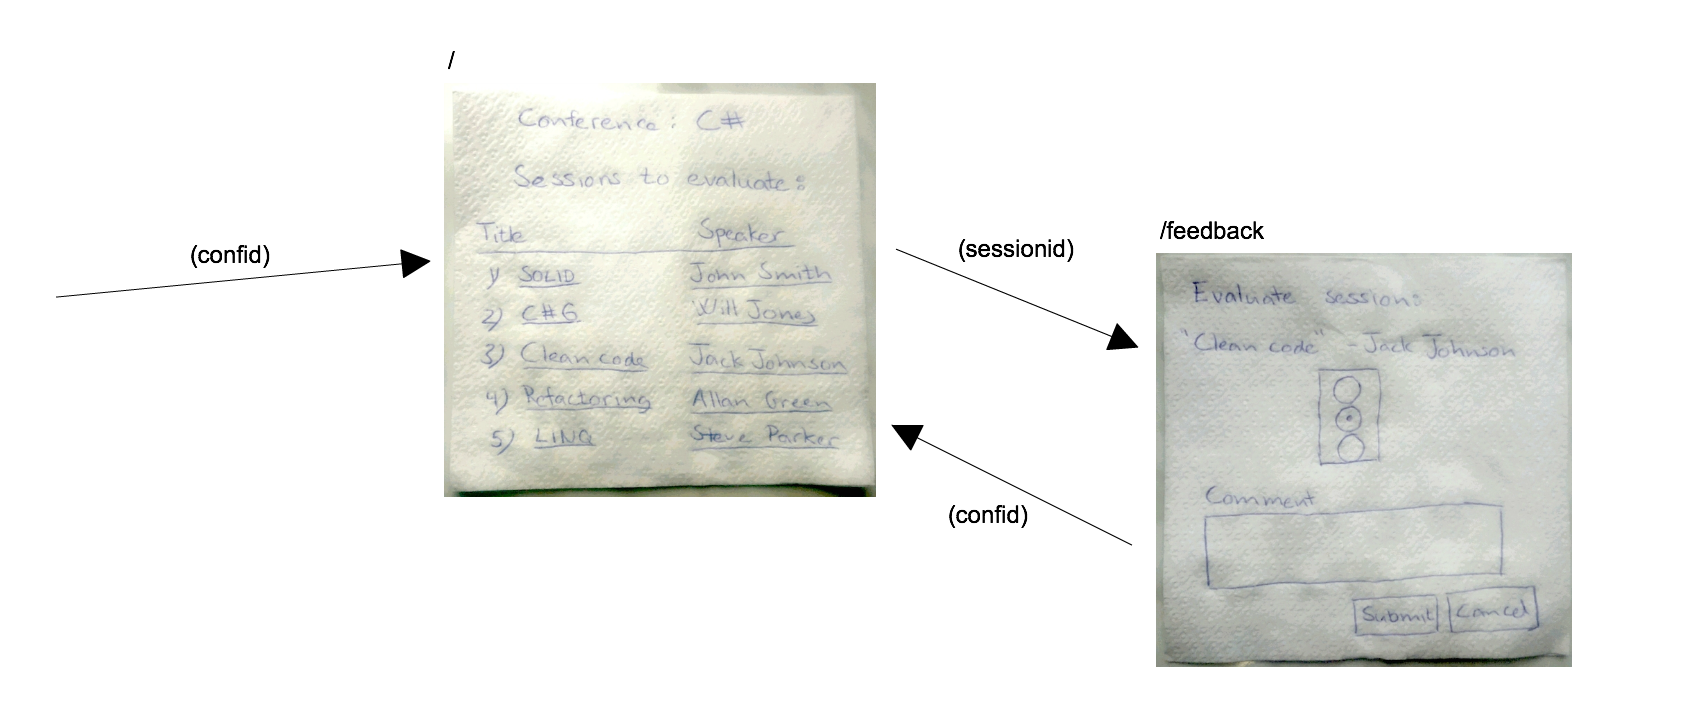 /
Conference: C#
Sessions to evaluate:
Title Speaker
1) SOLID John Smith
2) C#6 Will Jones
3) Clean code Jack Johnson
4) Refactoring Allan Green
5) LINQ Steve Parker
(confid)
(sessionid)
(confid)
/feedback
Evaluate session:
"Clean code" - Jack Johnson
Comment
Submit Cancel